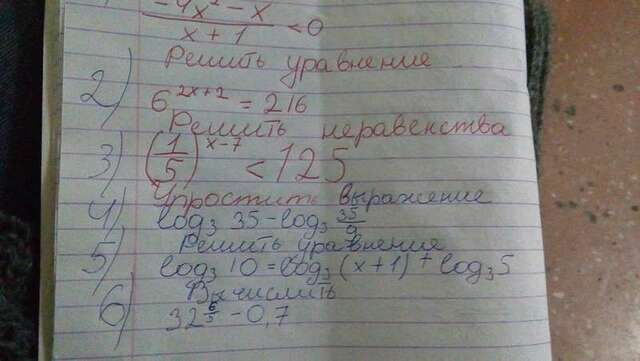 -4x² - x
x + 1 < 0
Решить уравнение
2) 6^{2x+2} = 216
Решить неравенства
3) (1/5)^{x-7} < 125
Упростить выражение
4) log₃ 35 - log₃ 35/9
Решить уравнение
5) log₃ 10 = log₃ (x+1) + log₃ 5
Вычислить
6) 32^{6/5} - 0,7